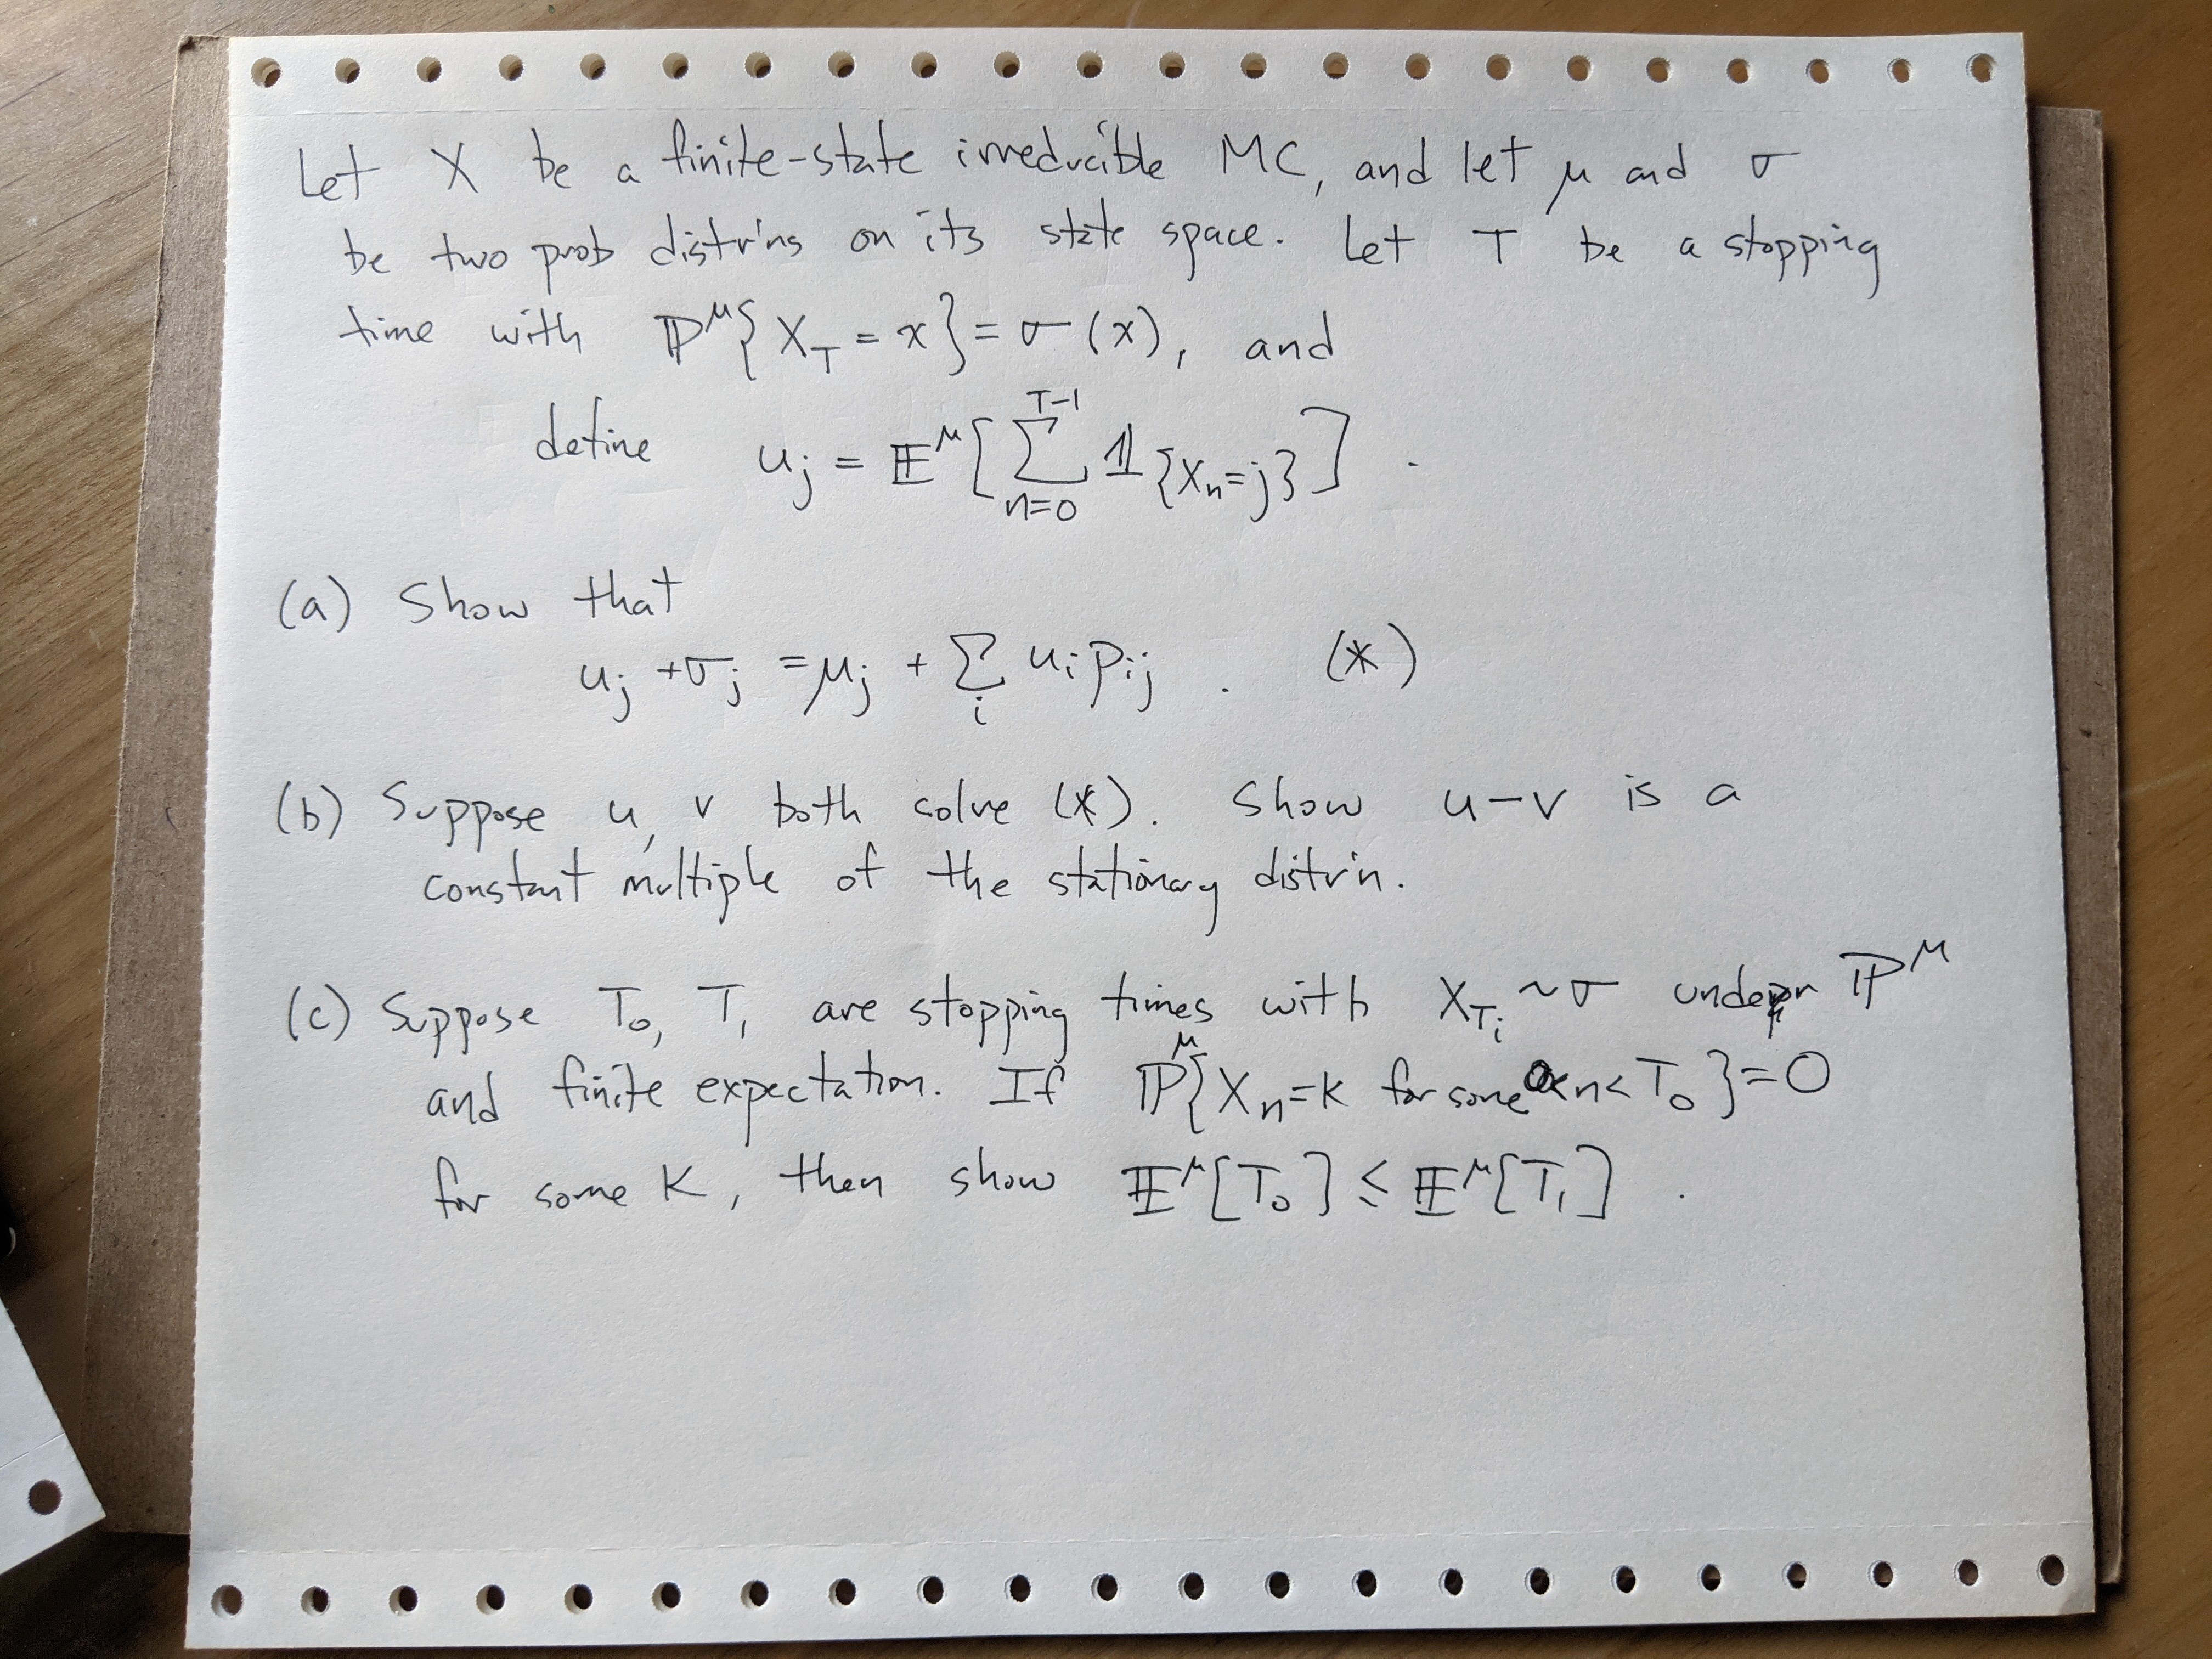 Let X be a finite-state irreducible MC, and let μ and σ
be two prob distr'ns on its state space. Let T be a stopping
time with ℙ^μ{X_T = x} = σ(x), and
define u_j = 𝔼^μ[∑_{n=0}^{T-1} 𝟙_{X_n=j}] .
(a) Show that
u_j + σ_j = μ_j + ∑_i u_i p_{ij} . (*)
(b) Suppose u, v both solve (*). Show u-v is a
constant multiple of the stationary distr'n.
(c) Suppose T_0, T_1 are stopping times with X_{T_i} ~ σ under ℙ^μ
and finite expectation. If ℙ^μ{X_n=k for some 0<n<T_0}=0
for some k, then show 𝔼^μ[T_0] ≤ 𝔼^μ[T_1] .